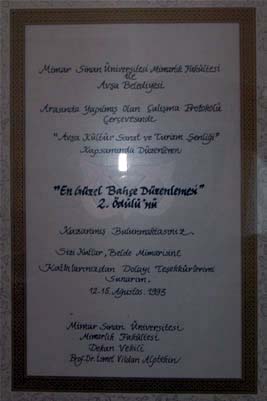 Mimar Sinan Üniversitesi Mimarlık Fakültesi
ile
Avşa Belediyesi
Arasında Yapılmış Olan Çalışma Protokolü
Çerçevesinde
"Avşa Kültür Sanat ve Turizm Şenliği"
Kapsamında Düzenlenen
"En Güzel Bahçe Düzenlemesi"
2. Ödülü'nü
Kazanmış Bulunmaktasınız
Sizi Kutlar, Belde Mimarisine
Katkılarınızdan Dolayı Teşekkürlerimi
Sunarım.
12.15. Ağustos. 1995
Mimar Sinan Üniversitesi
Mimarlık Fakültesi
Dekan Vekili
Prof. Dr. İsmet Vildan Alptekin